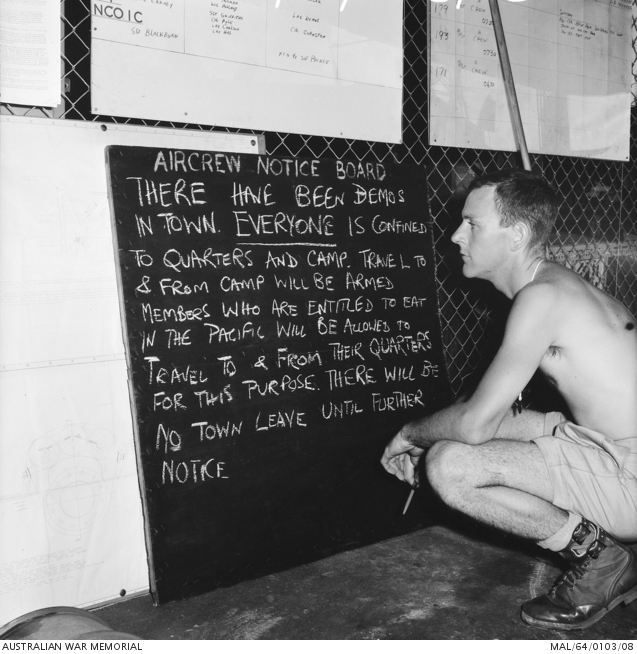 NCO IC
AIRCREW NOTICE BOARD
THERE HAVE BEEN DEMOS
IN TOWN. EVERYONE IS CONFINED
TO QUARTERS AND CAMP. TRAVEL TO
& FROM CAMP WILL BE ARMED
MEMBERS WHO ARE ENTITLED TO EAT
IN THE PACIFIC WILL BE ALLOWED TO
TRAVEL TO & FROM THEIR QUARTERS
FOR THIS PURPOSE. THERE WILL BE
NO TOWN LEAVE UNTIL FURTHER
NOTICE
AUSTRALIAN WAR MEMORIAL
MAL/64/0103/08